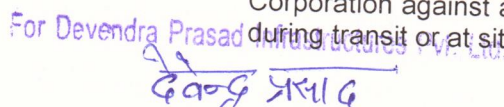 Corporation against a
For Devendra Prasad Infrastructures Pvt. Ltd.
during transit or at sit
देवेन्द्र प्रसाद